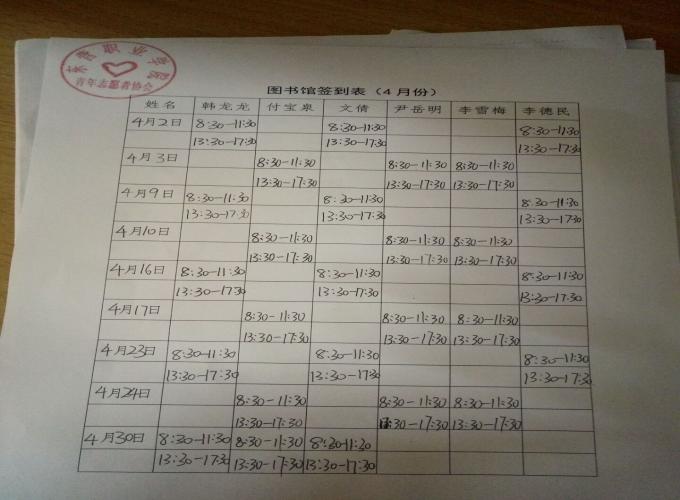 东营职业学院
青年志愿者协会
图书馆签到表（4月份）
姓名 韩龙龙 付宝泉 文倩 尹岳明 李雪梅 李德民
4月2日 8:30-11:30 8:30-11:30 8:30-11:30
13:30-17:30 13:30-17:30 13:30-17:30
4月3日 8:30-11:30 8:30-11:30 8:30-11:30
13:30-17:30 13:30-17:30 13:30-17:30
4月9日 8:30-11:30 8:30-11:30 8:30-11:30
13:30-17:30 13:30-17:30 13:30-17:30
4月10日 8:30-11:30 8:30-11:30 8:30-11:30
13:30-17:30 13:30-17:30 13:30-17:30
4月16日 8:30-11:30 8:30-11:30 8:30-11:30
13:30-17:30 13:30-17:30 13:30-17:30
4月17日 8:30-11:30 8:30-11:30 8:30-11:30
13:30-17:30 13:30-17:30 13:30-17:30
4月23日 8:30-11:30 8:30-11:30 8:30-11:30
13:30-17:30 13:30-17:30 13:30-17:30
4月24日 8:30-11:30 8:30-11:30 8:30-11:30
13:30-17:30 13:30-17:30 13:30-17:30
4月30日 8:30-11:30 8:30-11:30 8:30-11:30
13:30-17:30 13:30-17:30 13:30-17:30